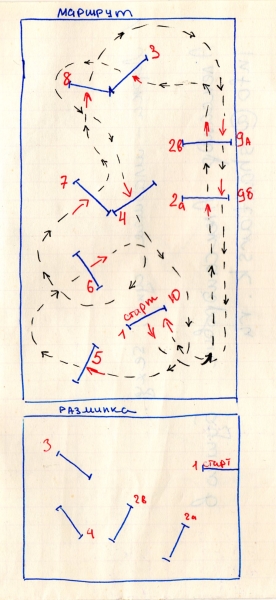 МАРШРУТ
3
8
2в 9А
7
2а 9б
4
6
старт 10
1
5
РАЗМИНКА
3
1 СТАРТ
2в
2а
4